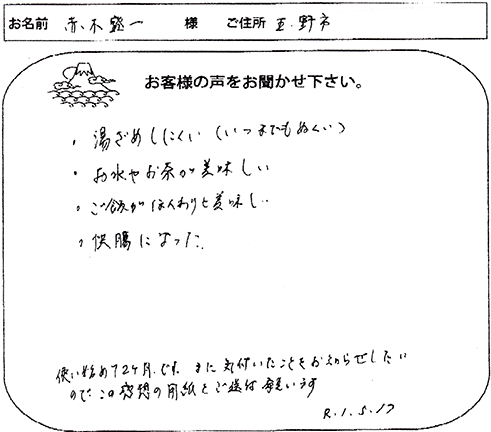 お名前 赤木 盛一 様 ご住所 玉野市
お客様の声をお聞かせ下さい。
・湯ざめしにくい(いつまでもぬくい)
・お水やお茶が美味しい
・ご飯がほんわりと美味しい
・快腸になった。
使い始め72ヶ月です。また気付いたことをお知らせしたい
のでこの感想の用紙をご送付願います
R.1.5.17